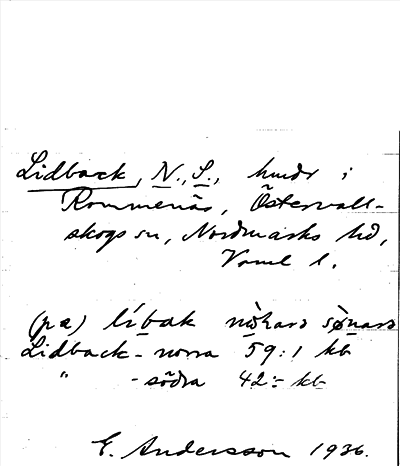 Lidback, N., S., hmdr i
Rommenäs, Östervall-
skogs sn, Nordmarks hd,
Värml l.
(pa) líbak nòkarɔ sønarɔ
Lidback - norra 59:1 kb
" - södra 42:- kb
E. Andersson 1936.